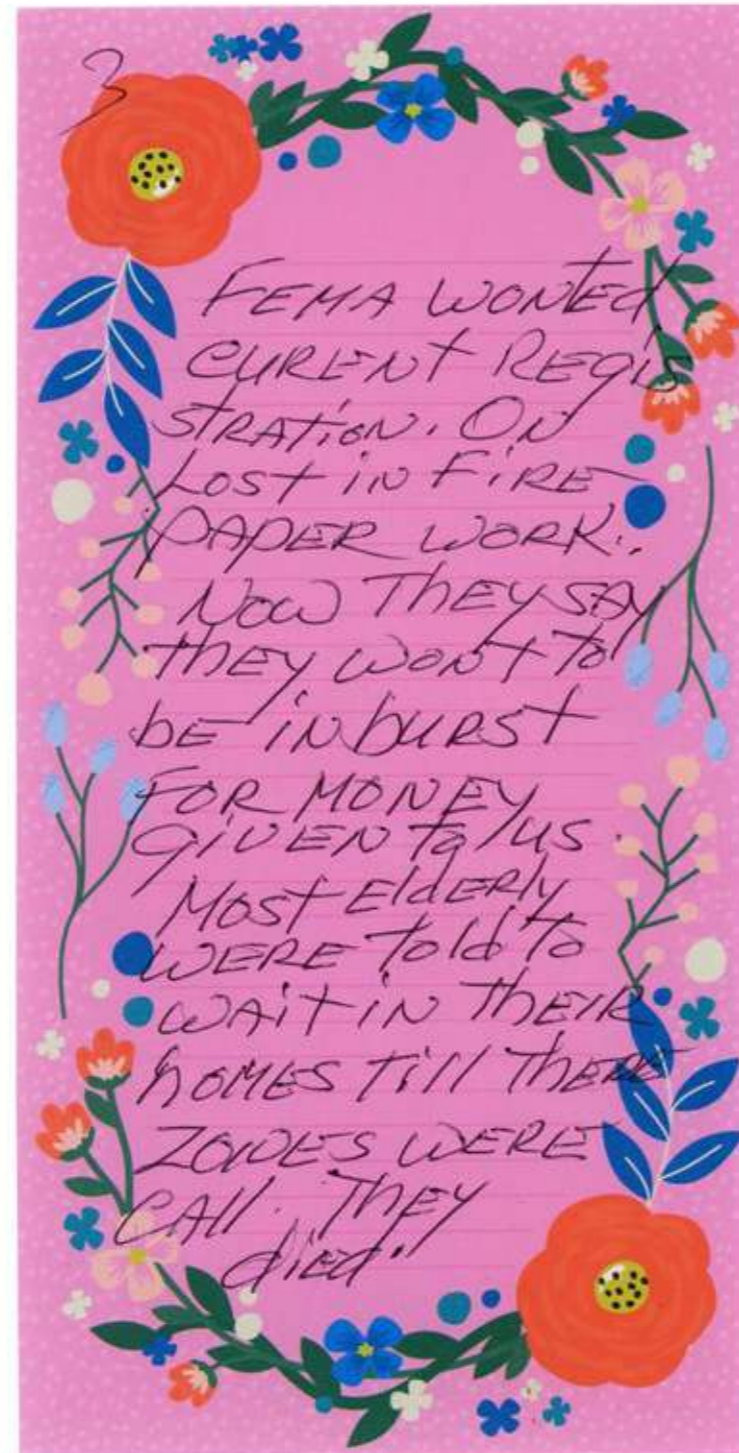 3
FEMA WONTED
CURENT REGI
STRATION. ON
LOST IN FIRE
PAPER WORK.
NOW THEY SAY
THEY WONT TO
BE INBURST
FOR MONEY
GIVEN TO US.
MOST ELDERLY
WERE TOLD TO
WAIT IN THEIR
HOMES TILL THERE
ZONES WERE
CALL. THEY
died.